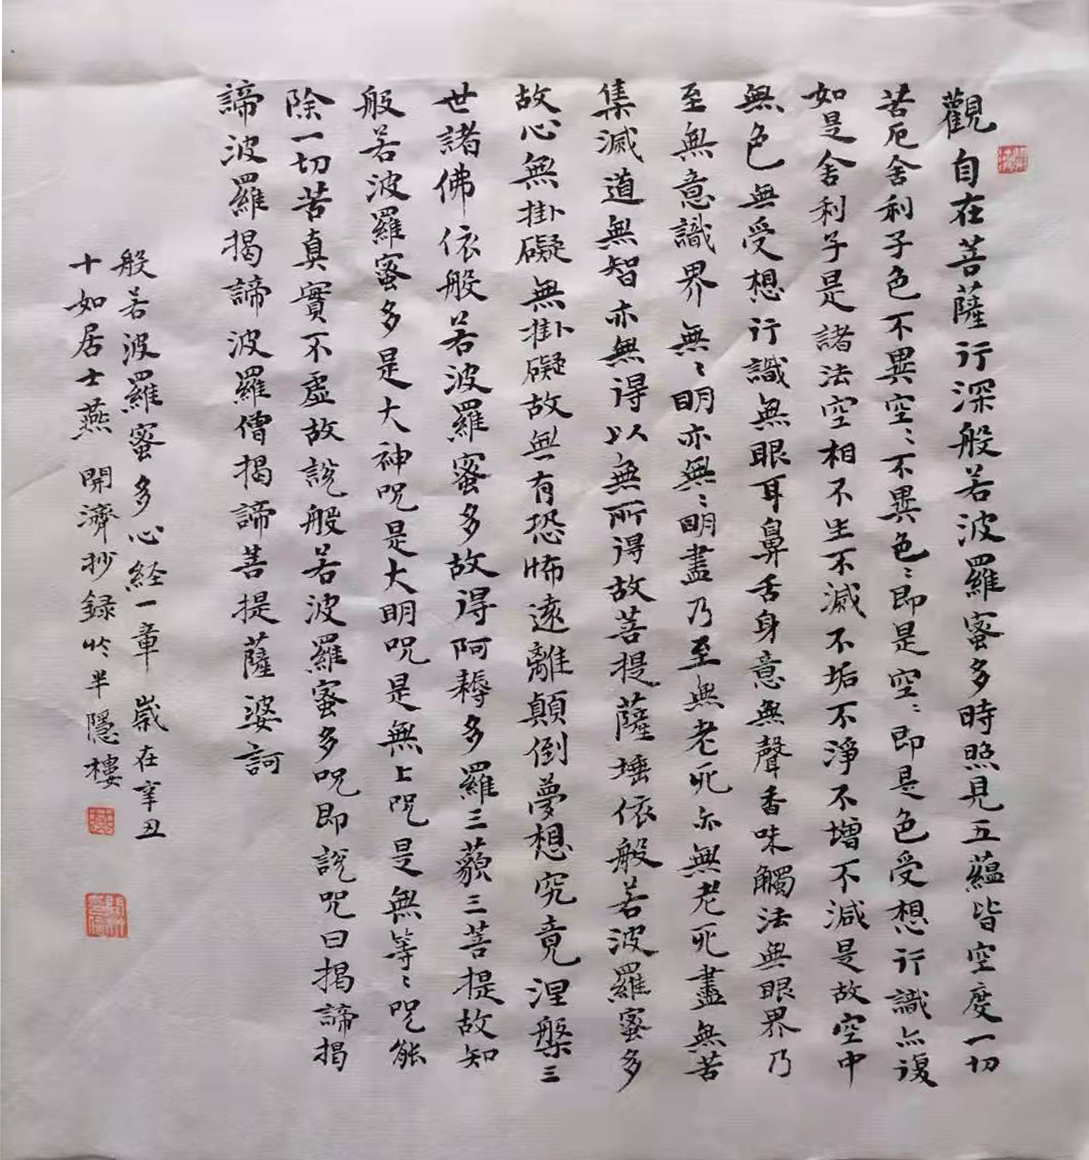 觀自在菩薩行深般若波羅蜜多時照見五蘊皆空度一切
苦厄舍利子色不異空〻不異色〻即是空〻即是色受想行識亦復
如是舍利子是諸法空相不生不滅不垢不淨不增不減是故空中
無色無受想行識無眼耳鼻舌身意無聲香味觸法無眼界乃
至無意識界無〻明亦無〻明盡乃至無老死亦無老死盡無苦
集滅道無智亦無得以無所得故菩提薩埵依般若波羅蜜多
故心無掛礙無掛礙故無有恐怖遠離顛倒夢想究竟涅槃三
世諸佛依般若波羅蜜多故得阿耨多羅三藐三菩提故知
般若波羅蜜多是大神咒是大明咒是無上咒是無等〻咒能
除一切苦真實不虛故說般若波羅蜜多咒即說咒曰揭諦揭
諦波羅揭諦波羅僧揭諦菩提薩婆訶
般若波羅蜜多心經一章 歲在辛丑
十如居士燕 開濟抄録於半隱樓